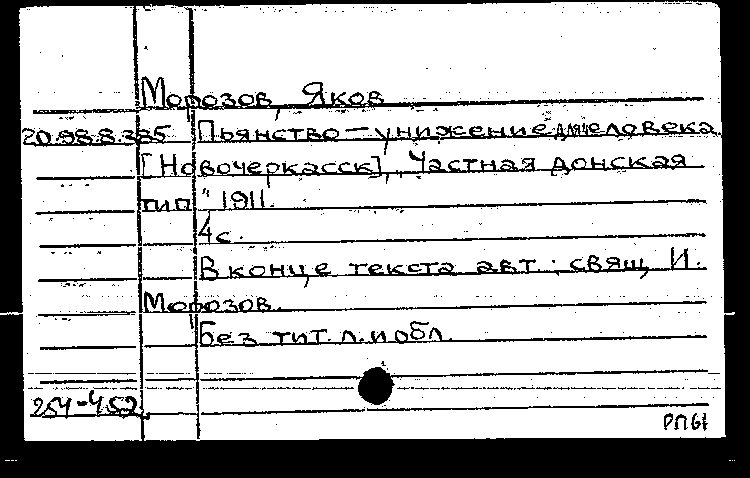 Морозов, Яков
20.98.8.385 Пьянство – унижение для человека
[Новочеркасск], "Частная донская
тип" 1911.
4с.
В конце текста авт.: свящ. И.
Морозов.
Без тит. л. и обл.
254-452
РП61